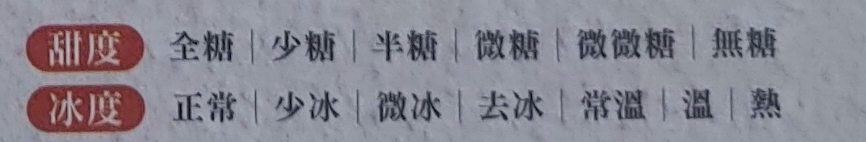 甜度 全糖｜少糖｜半糖｜微糖｜微微糖｜無糖
冰度 正常｜少冰｜微冰｜去冰｜常溫｜溫｜熱